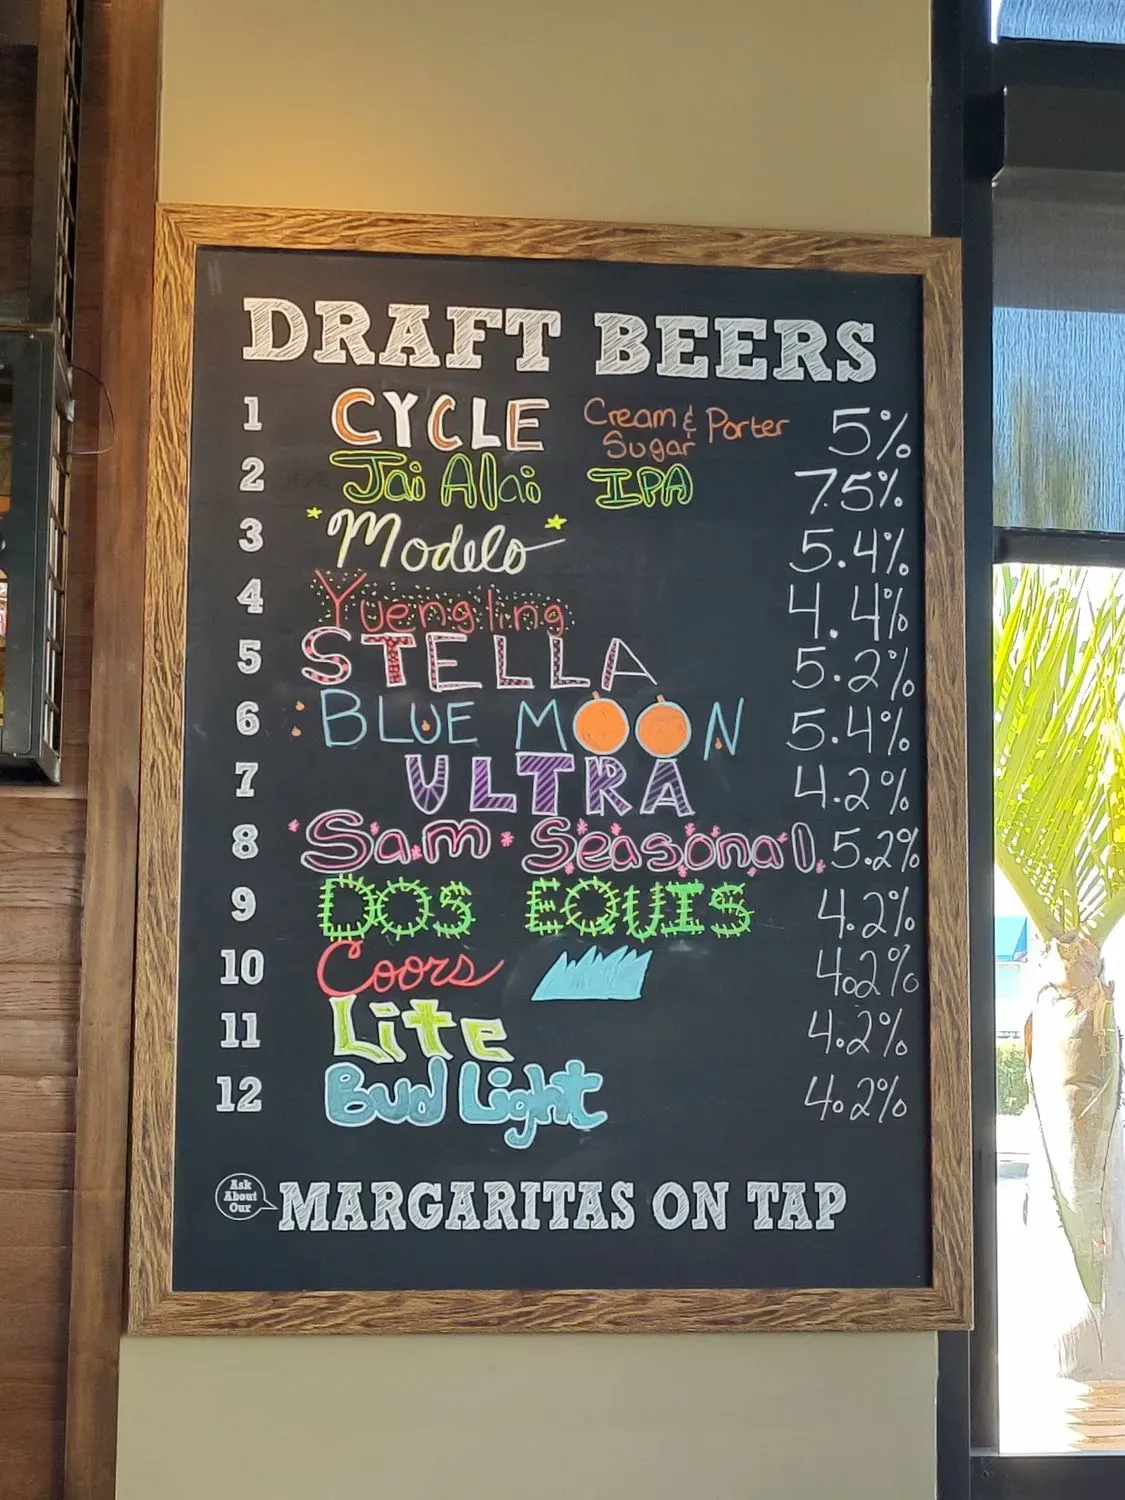 DRAFT BEERS
1 CYCLE Cream & Sugar Porter 5%
2 Jai Alai IPA 7.5%
3 Modelo 5.4%
4 Yuengling 4.4%
5 STELLA 5.2%
6 BLUE MOON 5.4%
7 ULTRA 4.2%
8 Sam Seasonal 5.2%
9 DOS EQUIS 4.2%
10 Coors 4.2%
11 Lite 4.2%
12 Bud Light 4.2%
Ask About Our MARGARITAS ON TAP